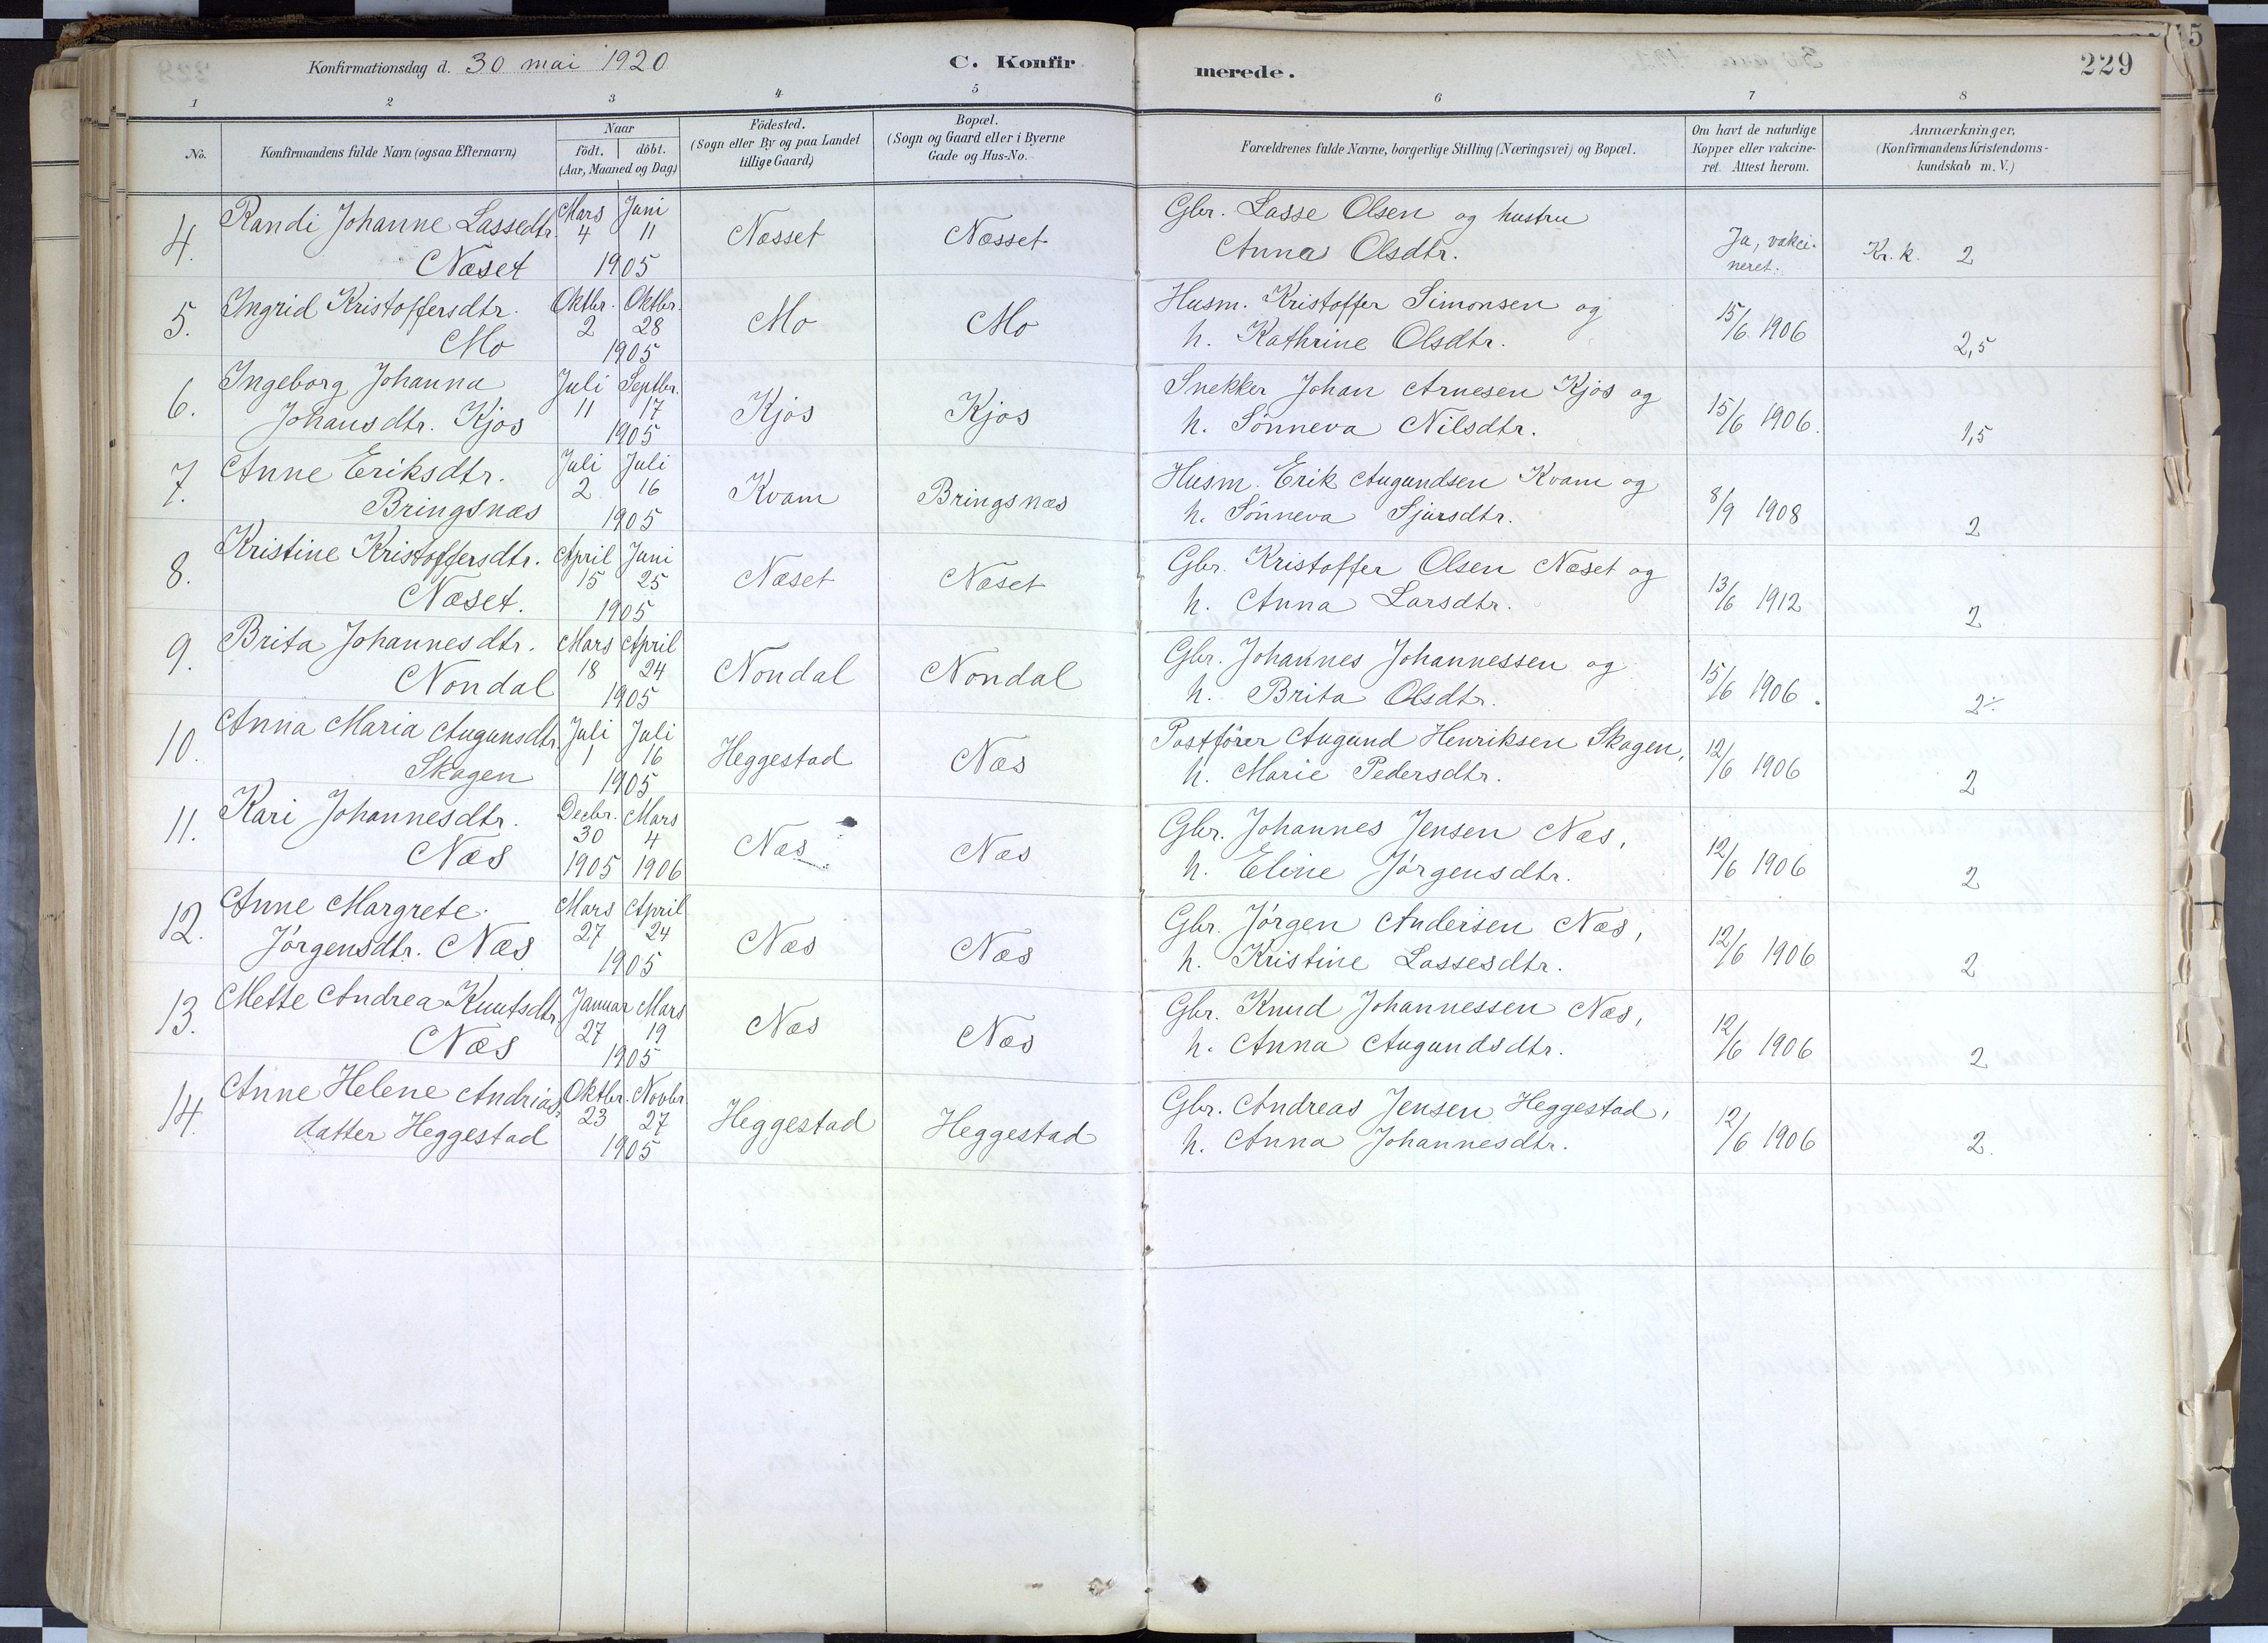 Konfirmationsdag d. 30 mai 1920
C. Konfirmerede.
229
1 2 3 4 5 6 7 8
No.
Konfirmandens fulde Navn (ogsaa Efternavn)
Naar
födt. | döbt.
(Aar, Maaned og Dag)
Födested.
(Sogn eller By og paa Landet
tillige Gaard)
Bopæl.
(Sogn og Gaard eller i Byerne
Gade og Hus-No.
Forældrenes fulde Navne, borgerlige Stilling (Næringsvei) og Bopæl.
Om havt de naturlige
Kopper eller vakcine-
ret. Attest herom.
Anmærkninger,
(Konfirmandens Kristendoms-
kundskab m. V.)
4. Randi Johanne Lassedtr. Næset
Mars 4 Juni 11 1905
Næsset Næsset
Gbr. Lasse Olsen og hustru
Anna Olsdtr.
Ja, vakci-
neret.
Kr. k. 2
5. Ingrid Kristoffersdtr. Mo
Oktbr. 2 Oktbr. 28 1905
Mo Mo
Husm. Kristoffer Simonsen og
h. Kathrine Olsdtr.
15/6 1906 2,5
6. Ingeborg Johanna
Johansdtr. Kjos
Juli 11 Septbr. 17 1905
Kjos Kjos
Snekker Johan Arnesen Kjos og
h. Sönneva Nilsdtr.
15/6 1906. 1,5
7. Anne Eriksdtr.
Bringsnæs
Juli 2 Juli 16 1905
Kvam Bringsnæs
Husm. Erik Augundsen Kvam og
h. Sönneva Sjursdtr.
8/9 1908 2
8. Kristine Kristoffersdtr.
Næset.
April 15 Juni 25 1905
Næset Næset
Gbr. Kristoffer Olsen Næset og
h. Anna Larsdtr.
13/6 1912 2
9. Brita Johannesdtr.
Nondal
Mars 18 April 24 1905
Nondal Nondal
Gbr. Johannes Johannessen og
h. Brita Olsdtr.
15/6 1906. 2÷
10. Anna Maria Augunsdtr.
Skagen
Juli 1 Juli 16 1905
Heggestad Næs
Postförer Augund Henriksen Skagen,
h. Marie Pedersdtr.
12/6 1906 2
11. Kari Johannesdtr.
Næs
Decbr. 30 1905 Mars 4 1906
Næs Næs
Gbr. Johannes Jensen Næs,
h. Eline Jörgensdtr.
12/6 1906 2
12. Anne Margrete
Jörgensdtr. Næs
Mars 27 April 24 1905
Næs Næs
Gbr. Jörgen Andersen Næs,
h. Kristine Lassesdtr.
12/6 1906 2
13. Mette Andrea Knutsdtr.
Næs
Januar 27 Mars 19 1905
Næs Næs
Gbr. Knud Johannessen Næs,
h. Anna Augundsdtr.
12/6 1906 2
14. Anne Helene Andrias-
datter Heggestad
Oktbr. 23 Novbr. 27 1905
Heggestad Heggestad
Gbr. Andreas Jensen Heggestad,
h. Anna Johannesdtr.
12/6 1906 2.